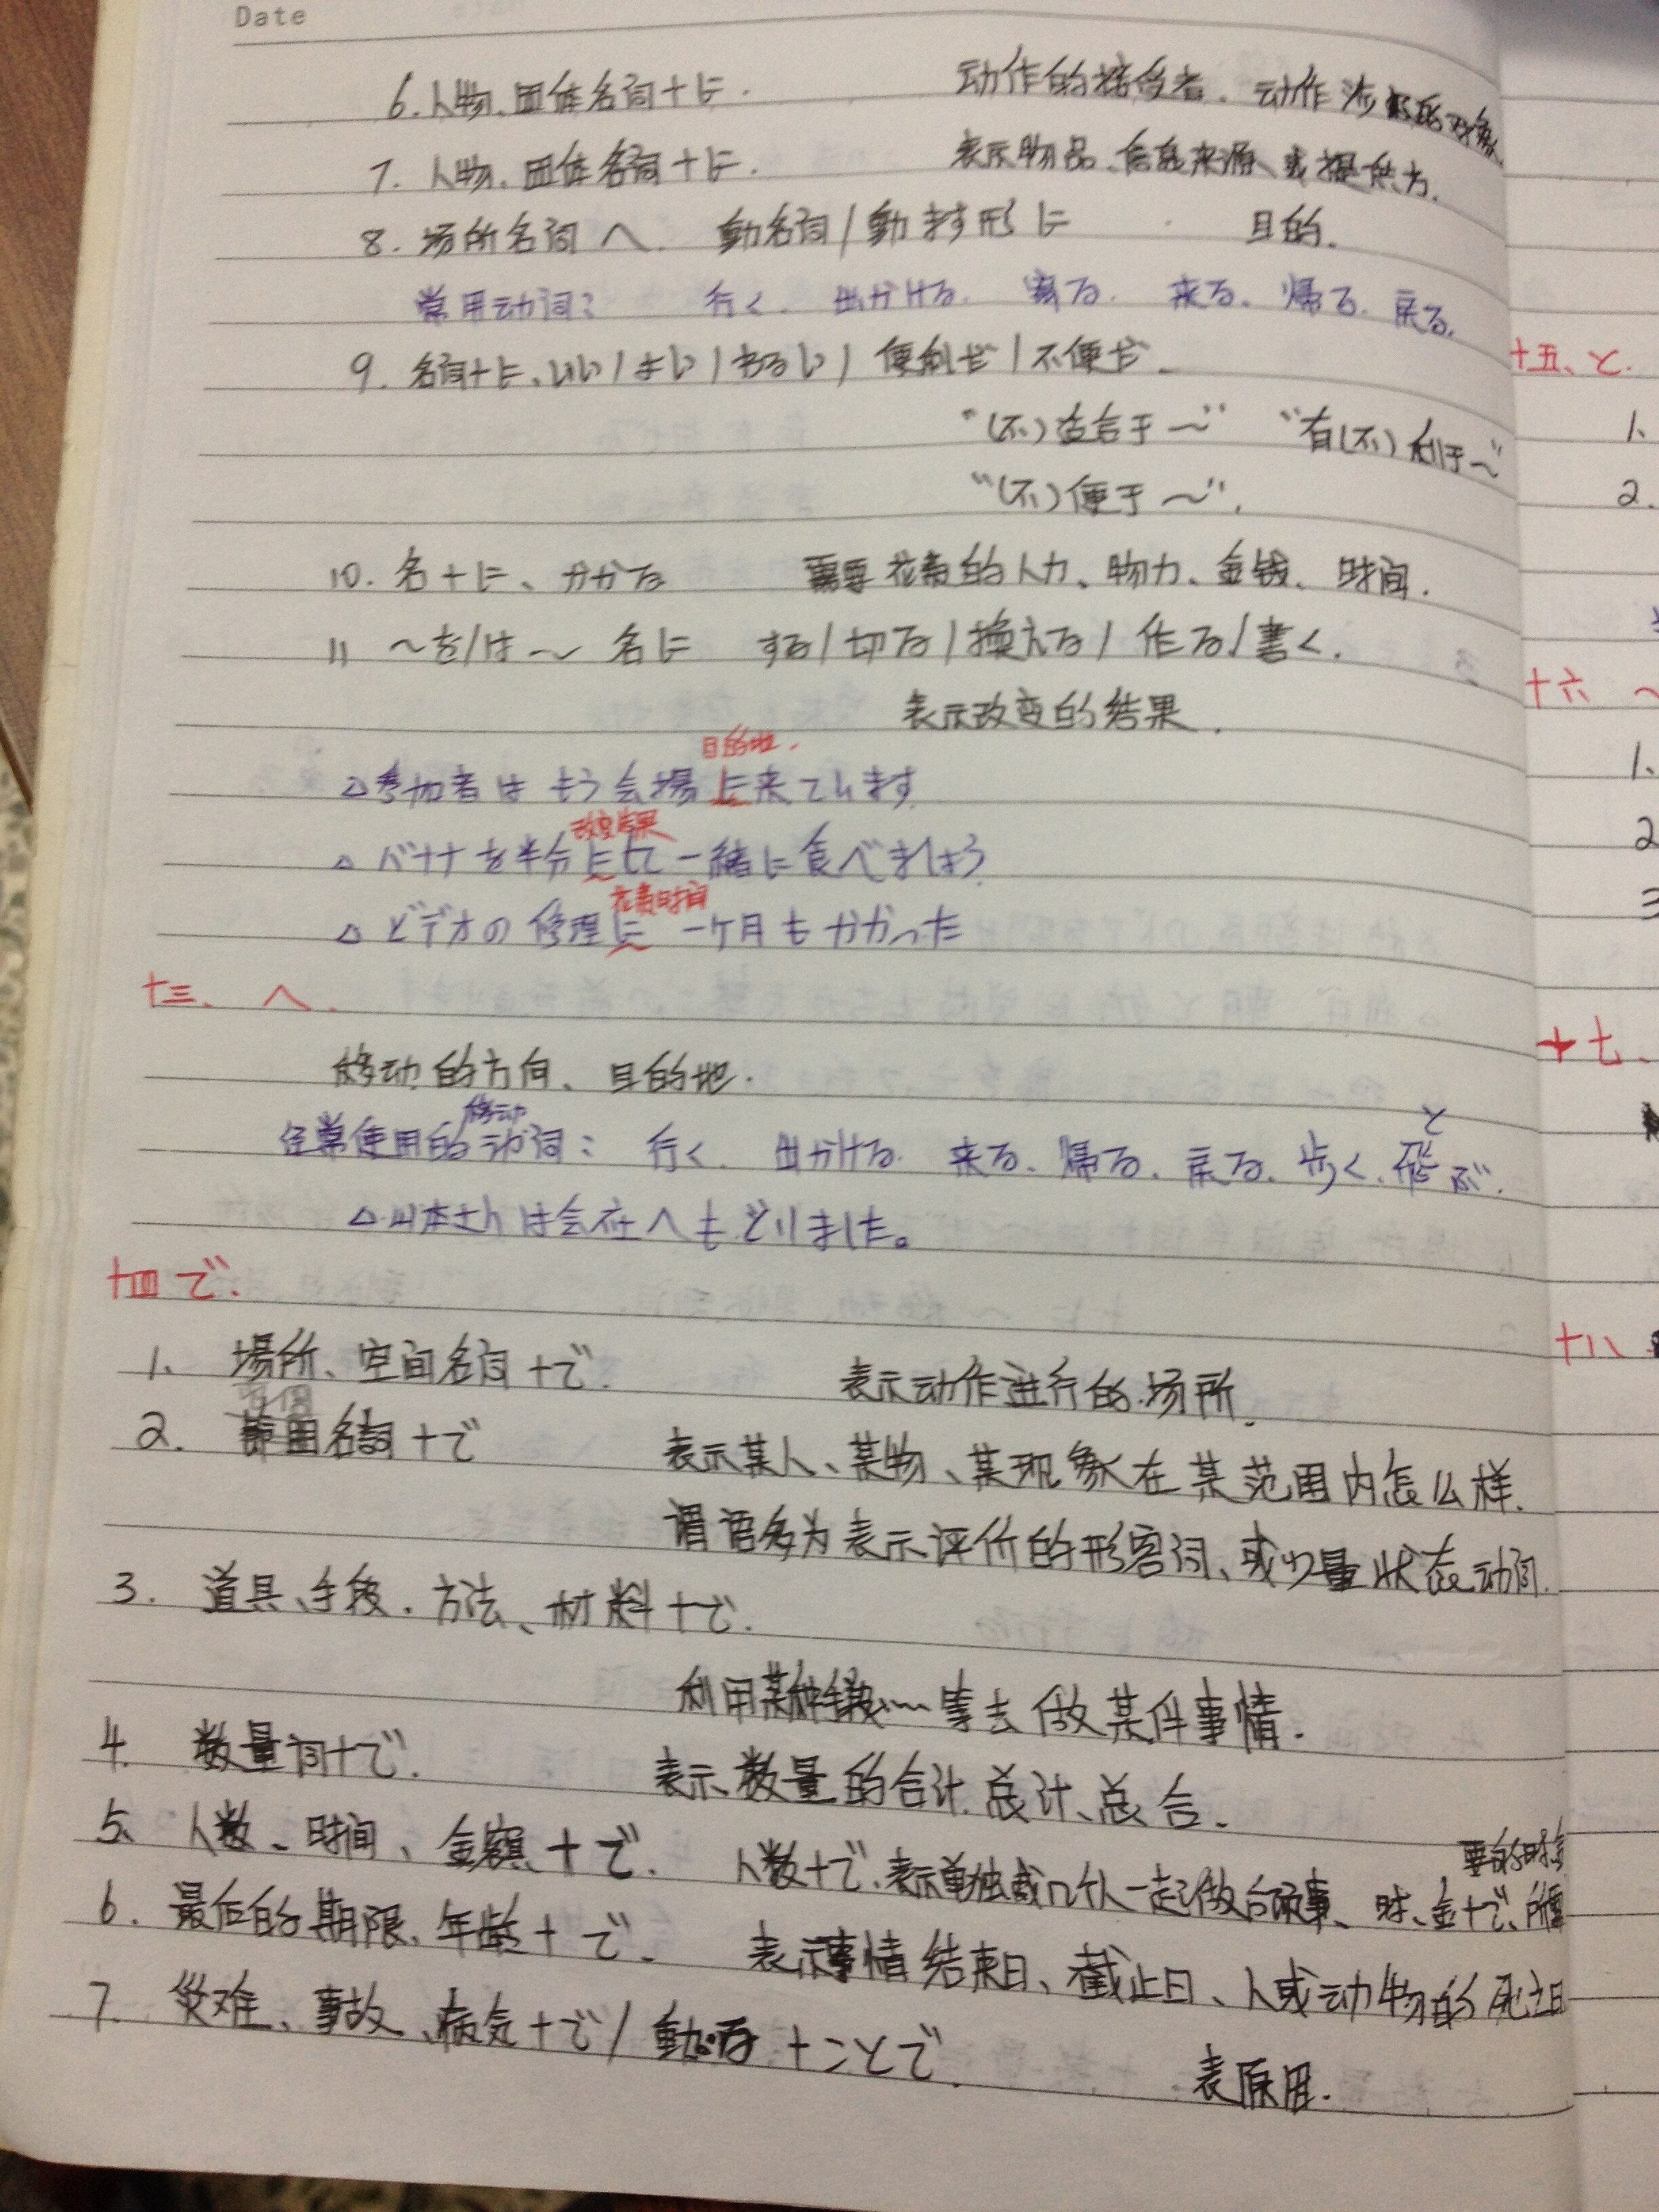 Date
6. 人物、団体名詞+に. 动作的接受者. 动作涉及的对象.
7. 人物、団体名詞+に. 表示物品、信息来源、或提供方.
8. 场所名詞 へ 動名詞/動ます形に 目的.
常用动词: 行く. 出かける. 来る. 帰る. 戻る.
9. 名詞+に、いい/よい/わるい/便利だ/不便だ.
“(不)适合于~” “有(不)利于~”
“(不)便于~”.
10. 名+に、かかる 需要花费的人力、物力、金钱、时间.
11 ~を/は~ 名に する/切る/換える/作る/書く.
表示改变的结果.
目的地.
△参加者は もう会場に来ています
改变结果
△ バナナを半分にして一緒に食べましょう
花费时间
△ ビデオの修理に 一ケ月もかかった
十三、へ.
移动的方向、目的地.
移动
经常使用的动词: 行く 出かける 来る、帰る、戻る、歩く、飛ぶ.
と
△山本さんは会社へもどりました。
十四 で.
1、 場所、空间名詞+で. 表示动作进行的场所.
2. 範囲名詞+で 表示某人、某物、某现象在某范围内怎么样.
谓语多为表示评价的形容词、或少量状态动词.
3. 道具、手段、方法、材料+で.
利用某种手段……等去做某件事情.
4. 数量词+で. 表示数量的合计、总计、总合.
5、 人数、时间、金額+で. 人数+で、表示单独或几个人一起做某事、时、金+で、
6. 最后的期限、年齢+で. 表示事情结束日、截止日、人或动物的死
7. 災难、事故、病気+で/動る+ことで. 表原因.
十五、と.
1、
2.
十六
1、
2
3
十七、
十八、